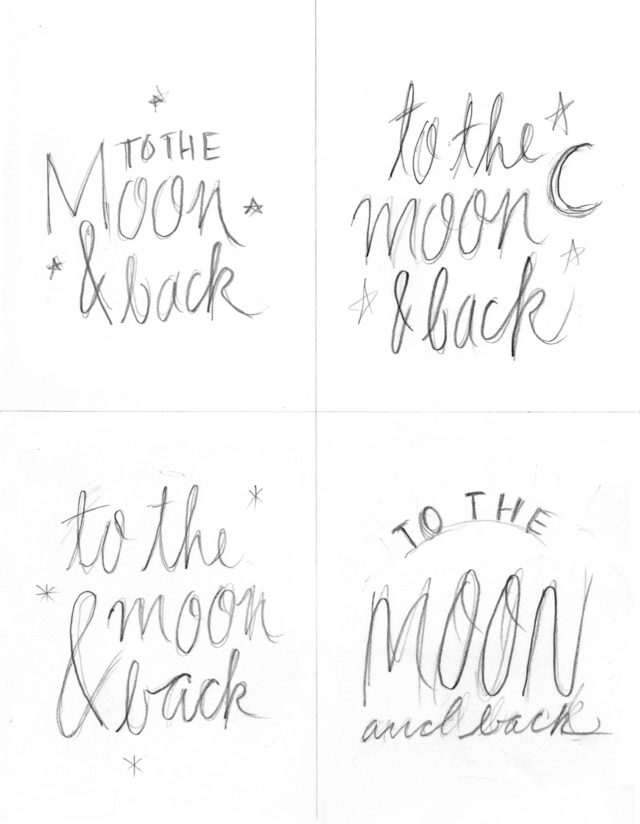 TO THE
Moon
& back
to the
moon
& back
to the
moon
& back
TO THE
MOON
and back